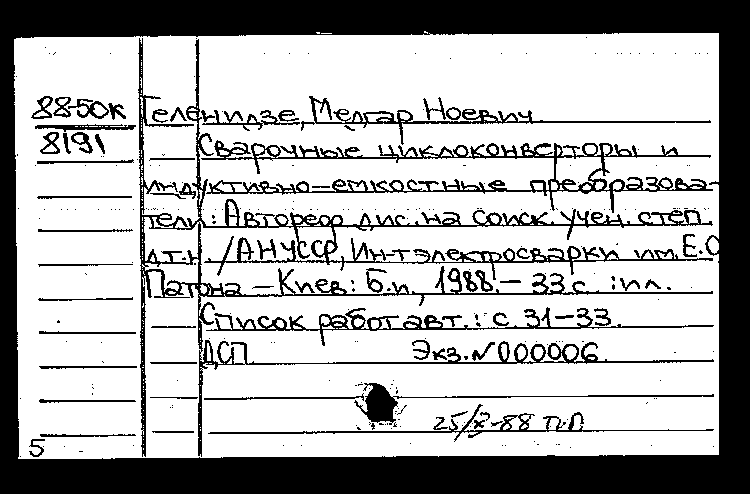 88-50к Геленидзе, Мелгар Ноевич.
8191 Сварочные циклоконверторы и
индуктивно-емкостные преобразова-
тели: Автореф дис. на соиск. учен. степ.
д.т.н. /АН УССР, Ин-т электросварки им. Е.О
Патона – Киев: Б.и., 1988. – 33 с. : ил.
Список работ авт.: с. 31-33.
ДСП Экз. N 000006.
25/X-88
5